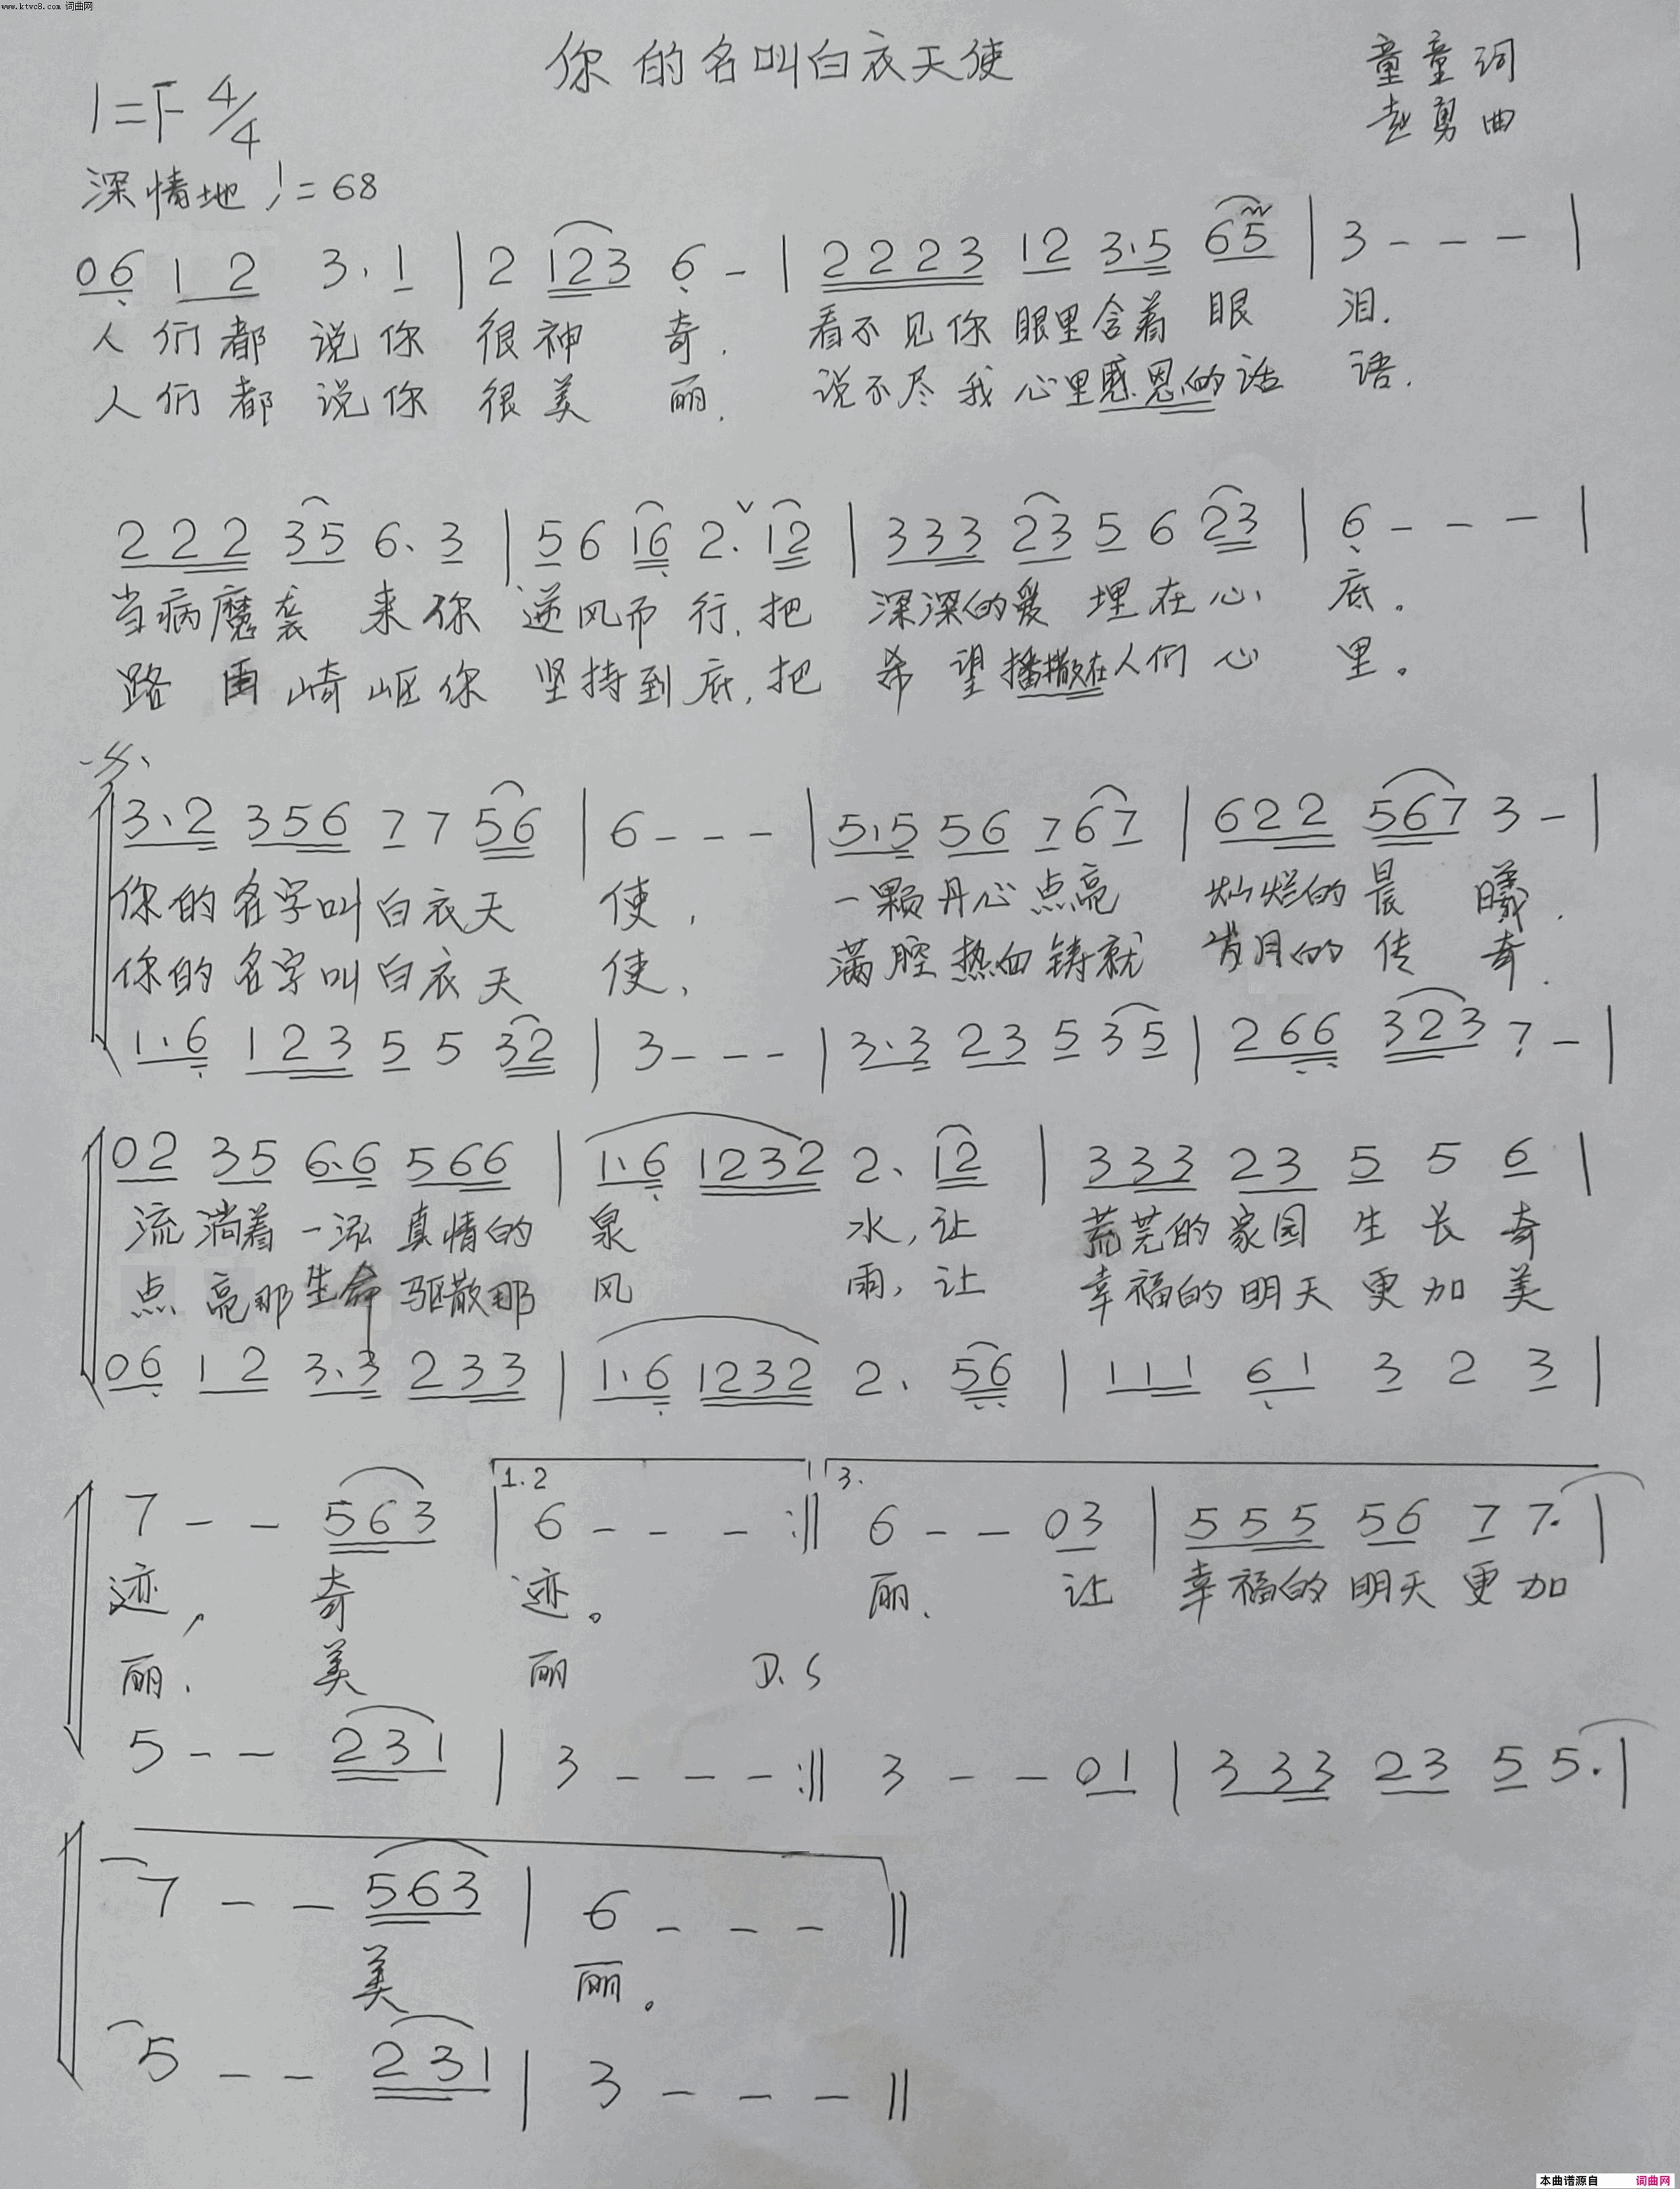 www.ktvc8.com 词曲网
你的名叫白衣天使
童童词
赵勇曲
1=F 4/4
深情地 ♩=68
06 1 2 3. 1 | 2 123 6 - | 2223 12 3.5 65 | 3 - - - |
人们都说你很神奇. 看不见你眼里含着眼泪.
人们都说你很美丽. 说不尽我心里感恩的话语.
222 35 6. 3 | 5 6 16 2. ˅ 12 | 333 23 5 6 23 | 6 - - - |
当病魔袭来你逆风而行,把深深的爱埋在心底.
路由崎岖你坚持到底,把希望播撒在人们心里。
3.2 356 7 7 56 | 6 - - - | 5.5 56 7 67 | 622 567 3 - |
你的名字叫白衣天使, 一颗丹心点亮灿烂的晨曦.
你的名字叫白衣天使, 满腔热血铸就岁月的传奇.
1.6 123 5 5 32 | 3 - - - | 3.3 23 5 35 | 266 323 7 - |
02 35 6.6 566 | 1.6 1232 2. 12 | 333 23 5 5 6 |
流淌着一泓真情的泉水,让荒芜的家园生长奇
点亮那生命驱散那风雨,让幸福的明天更加美
06 12 3.3 233 | 1.6 1232 2. 56 | 111 61 3 2 3 |
1.2 3.
7 - - 563 | 6 - - - :‖ 6 - - 03 | 555 56 7 7. |
迹, 奇迹。 丽. 让幸福的明天更加
丽. 美丽 D.S
5 - - 231 | 3 - - - :‖ 3 - - 01 | 333 23 5 5. |
7 - - 563 | 6 - - - ‖
美丽。
5 - - 231 | 3 - - - ‖
本曲谱源自 词曲网